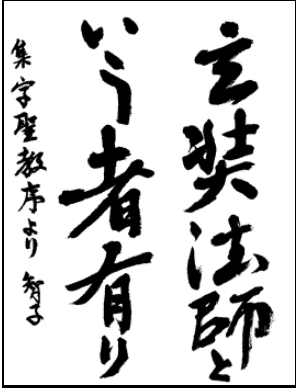 玄奘法師と
いう者有り
集字聖教序より 智子